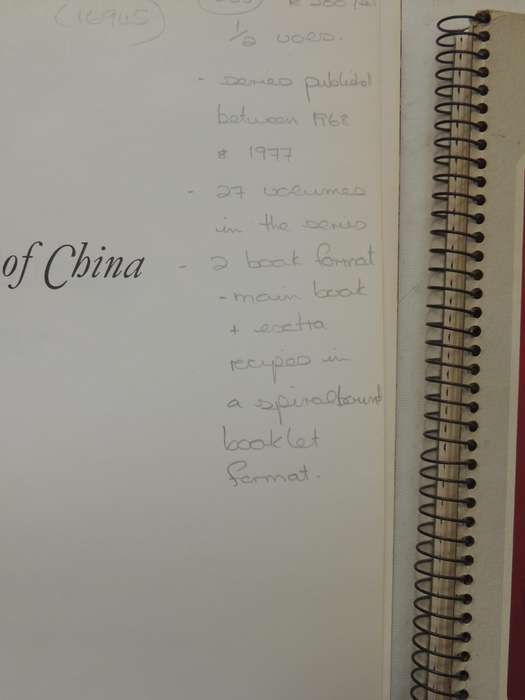 (16945)
1/2 vols.
- series publishd
between 1968
& 1977
- 27 volumes
in the series
of China
- 2 book format
- main book
+ extra
recipes in
a spiralbound
booklet
format.